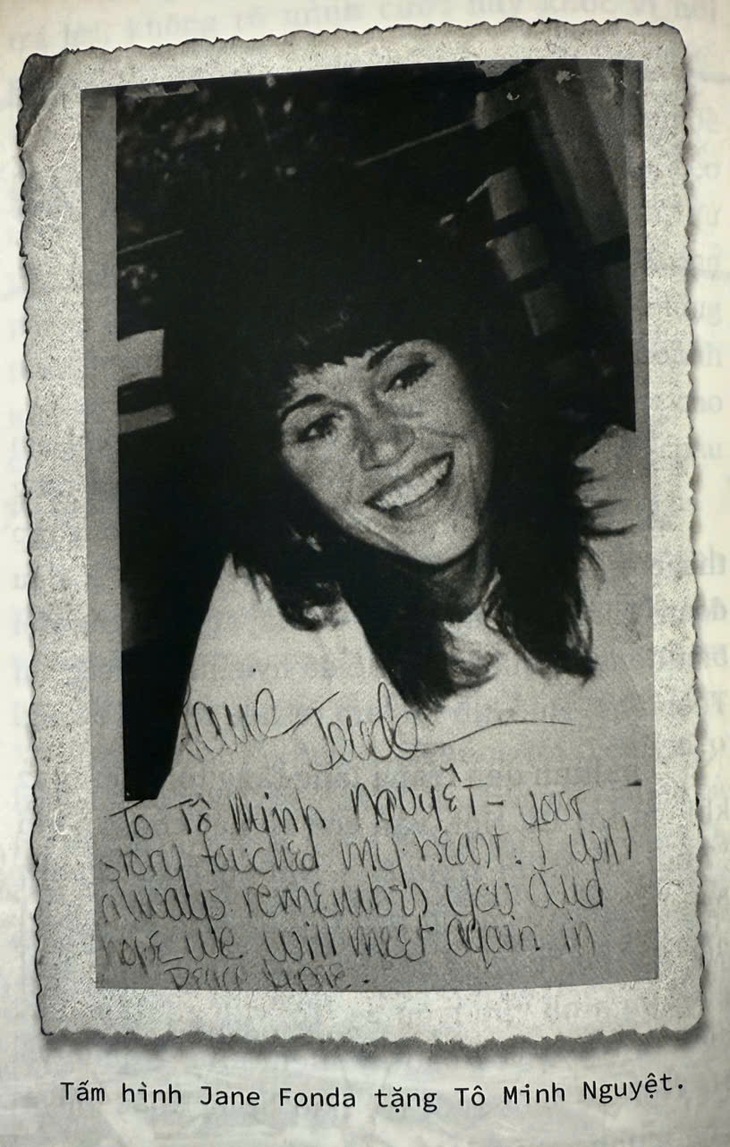 Jane Fonda
To Tô Minh Nguyệt - your
story touched my heart. I will
always remember you and
hope we will meet again in
peace time.
Tấm hình Jane Fonda tặng Tô Minh Nguyệt.